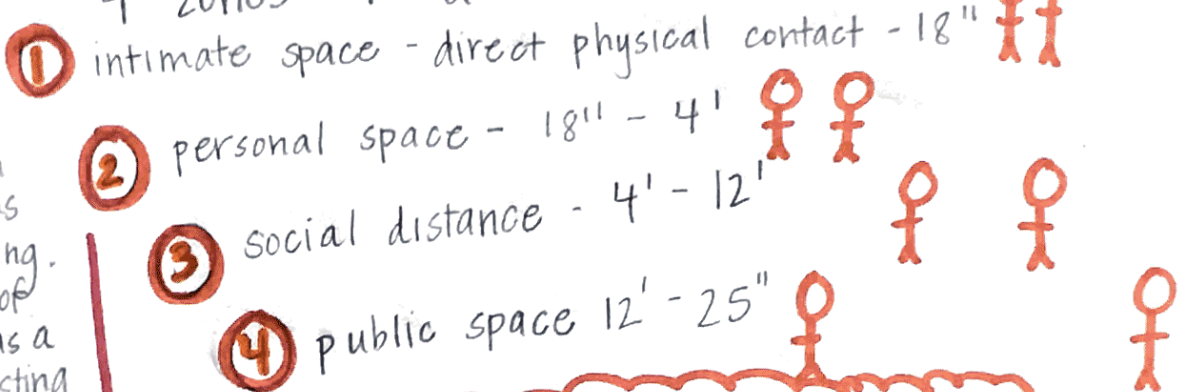 4 zones
1 intimate space - direct physical contact - 18"
2 personal space - 18" - 4'
3 social distance - 4' - 12'
4 public space 12' - 25"
s
ng.
of
is a
sting